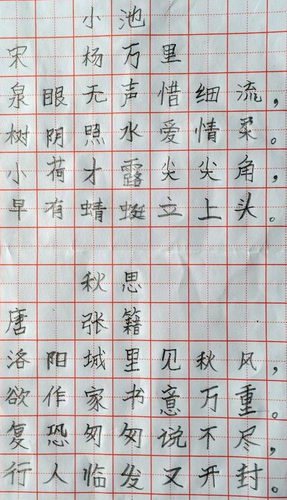 小池
宋 杨万里
泉眼无声惜细流，
树阴照水爱情柔。
小荷才露尖尖角，
早有蜻蜓立上头。
秋思
唐 张籍
洛阳城里见秋风，
欲作家书意万重。
复恐匆匆说不尽，
行人临发又开封。